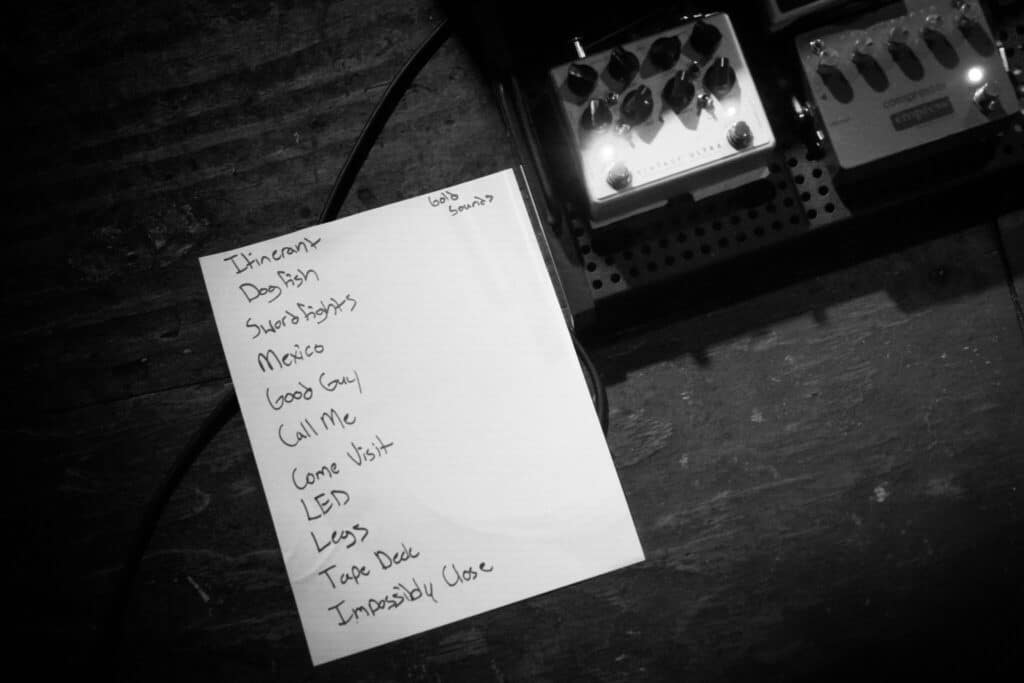 Gold
Sounds
Itinerant
Dogfish
Swordfights
Mexico
Good Guy
Call Me
Come Visit
LED
Legs
Tape Deck
Impossibly Close
VINTAGE ULTRA
compressor
empress